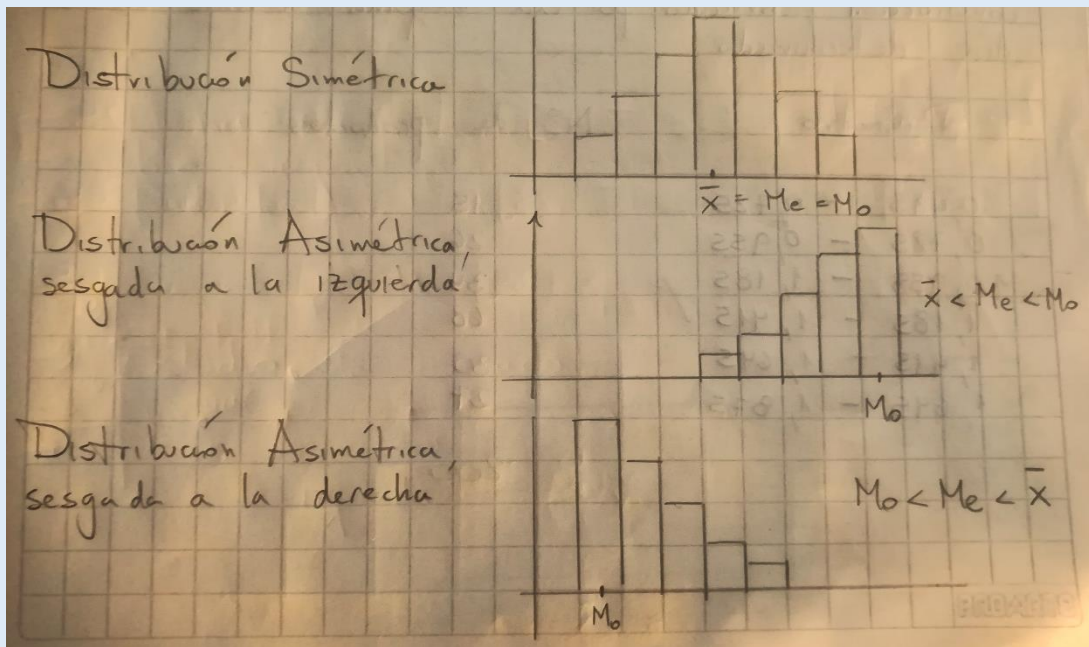 Distribución Simétrica
x̄ = Me = Mo
Distribución Asimétrica,
sesgada a la izquierda
x̄ < Me < Mo
Mo
Distribución Asimétrica,
sesgada a la derecha
Mo < Me < x̄
Mo